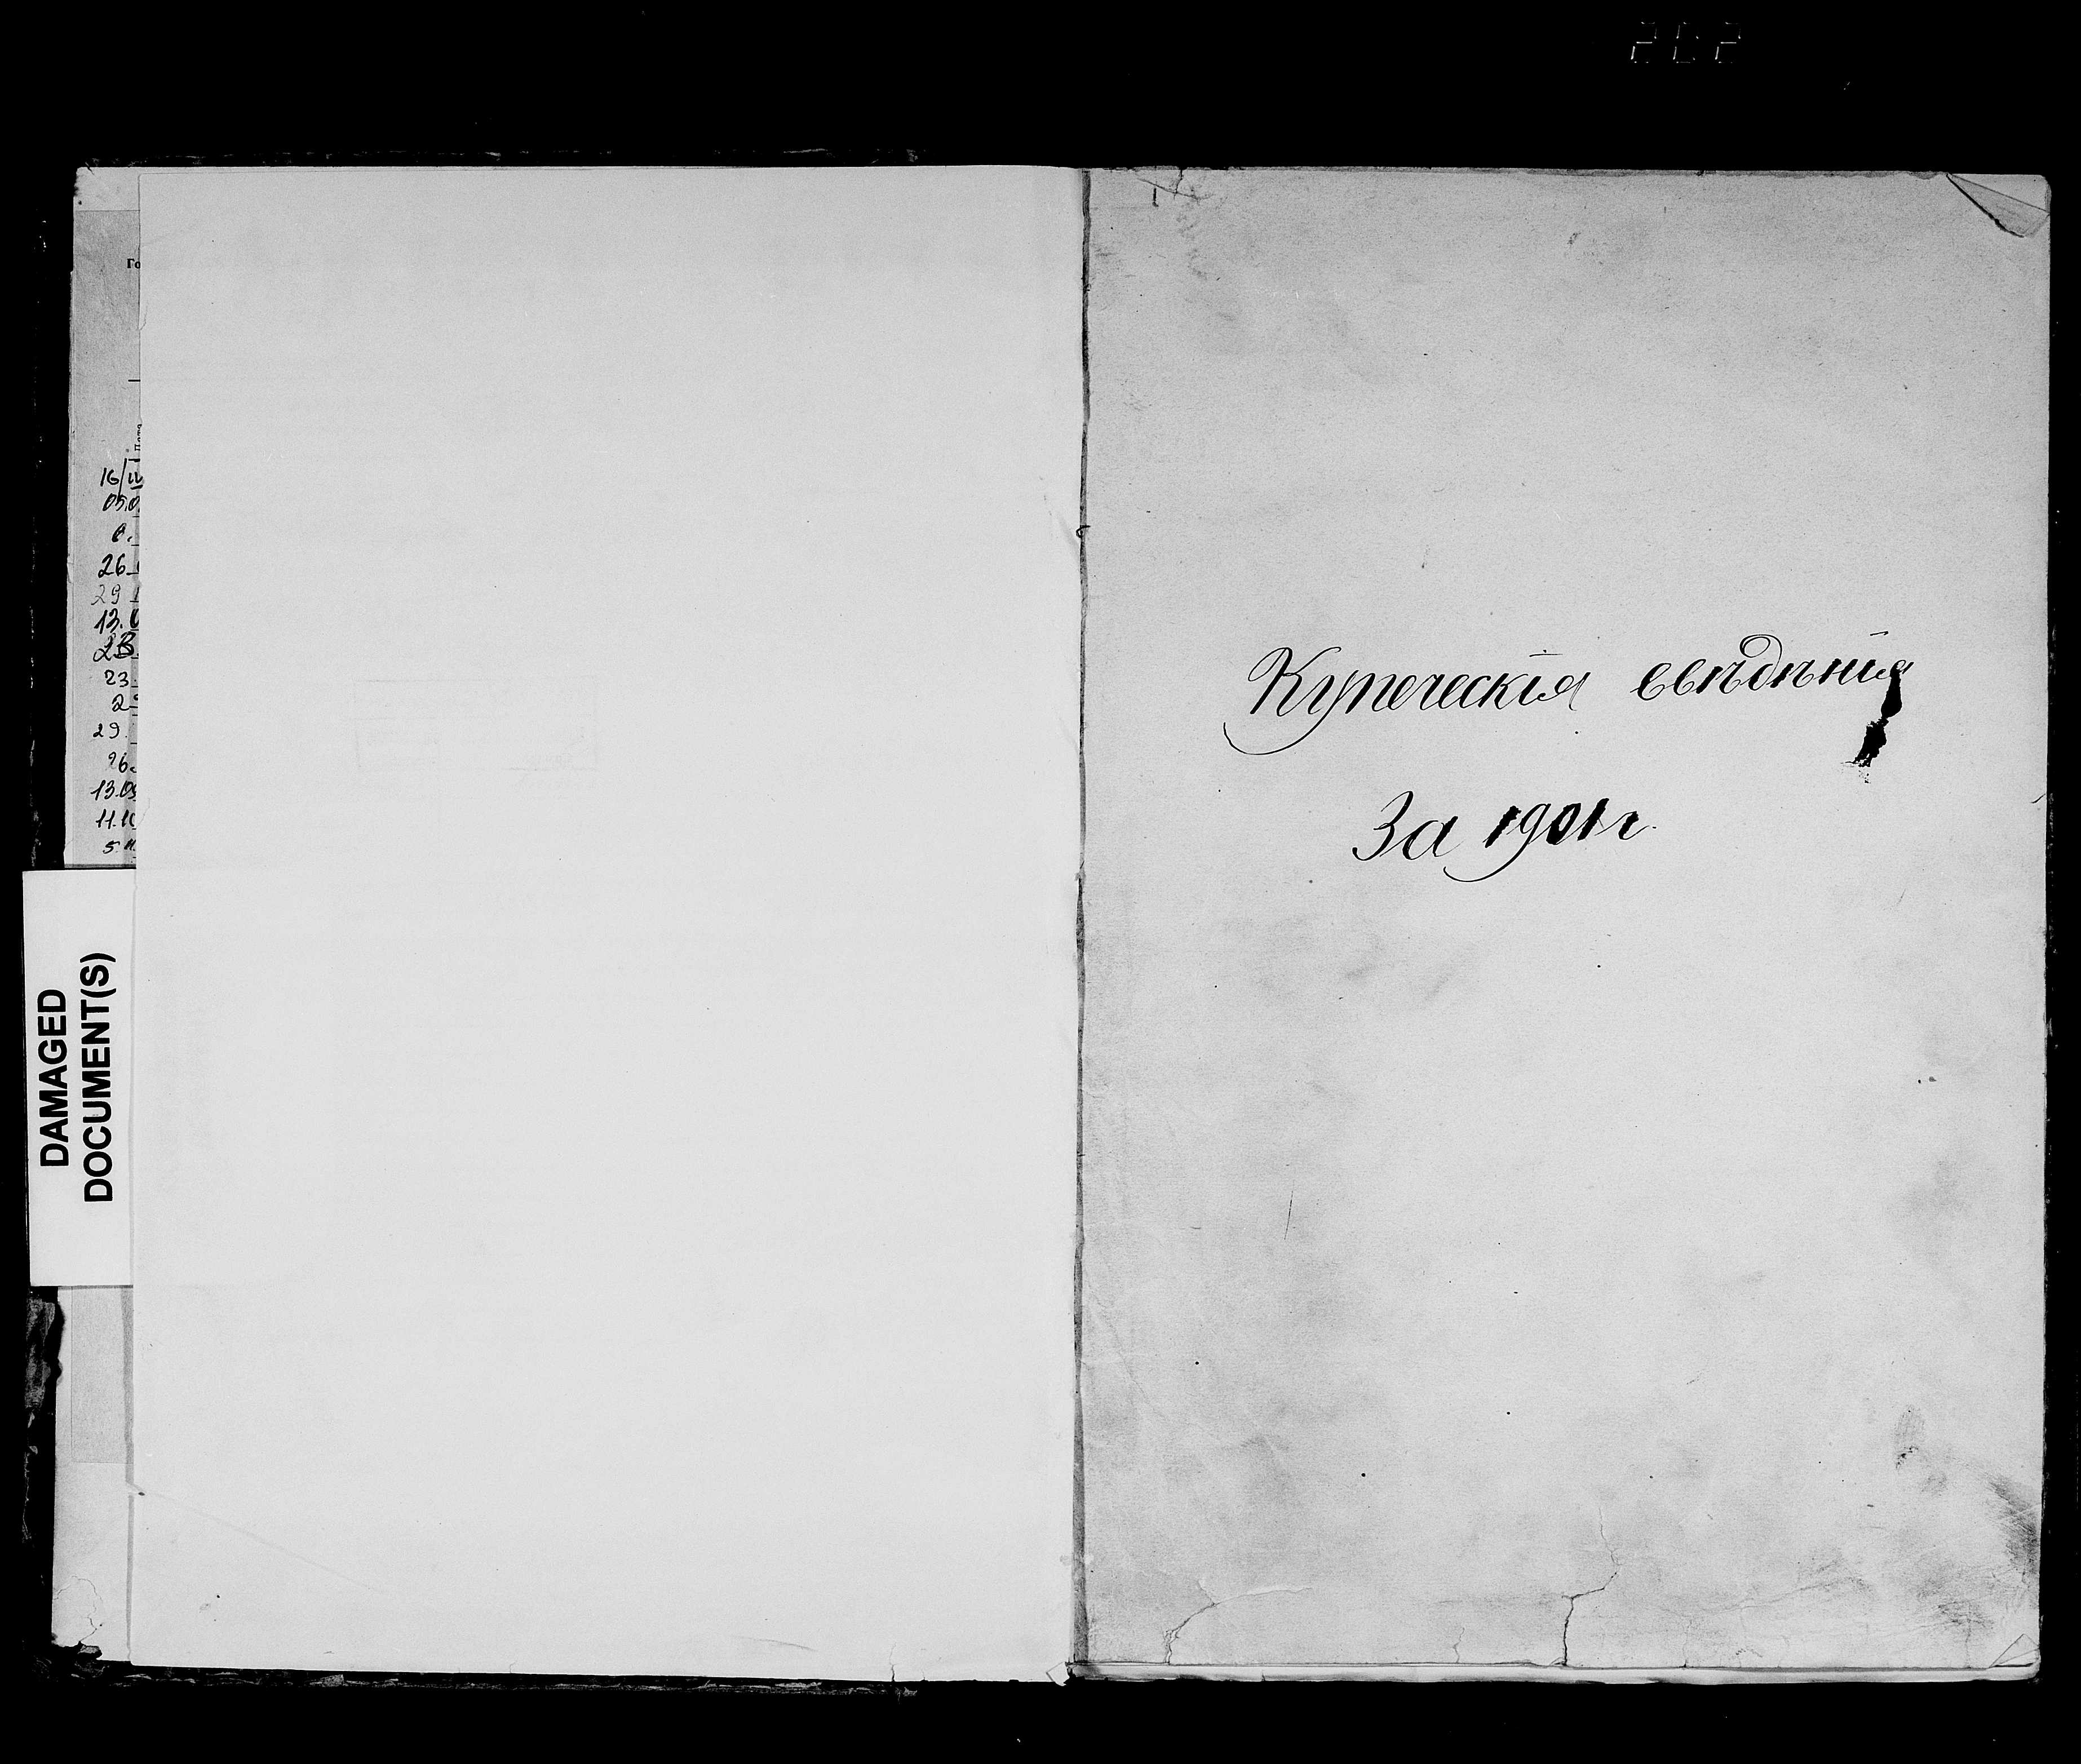 202
Го
16/
26
29
13.
23.
29.
26.
13.09
11.10
5.
DAMAGED
DOCUMENT(S)
Купеческія свѣдѣнія
За 1901 г.